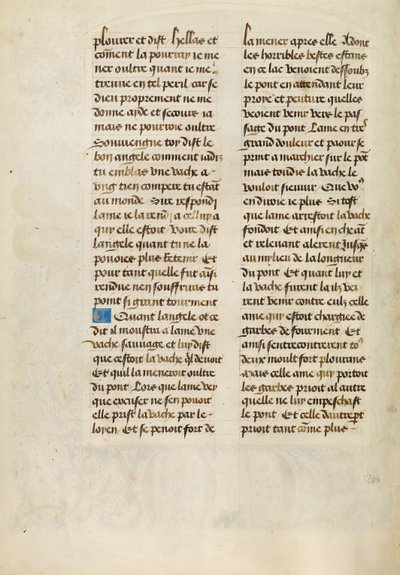 plourer et dist hellas et
cõment la pourray ie me
ner oultre quant ie me
treuue en tel peril car se
dieu proprement ne me
donne ayde et secours ia
mais ne pourroie oultre
Souuiengne toy dist le
bon angele comment iadis
tu emblas vne vache a
vng tien compere tu estãt
au monde Sire respondi
lame ie la rendi a celluy a
qui elle estoit Voire dist
langele quant tu ne la
pouoies plus retenir Et
pour tant quelle fut aĩsi
rendue nen souffriras tu
point si grant tourment
Quant langele ot ce
dit il moustra a lame vne
vache sauuage et luy dist
que cestoit la vache q̃l deuoit
Et quil la menroit oultre
du pont Lors que lame vey
que excuser ne sen pouoit
elle prist la vache par le
loyen Et se penoit fort de
la mener apres elle Adont
les horribles bestes estans
en ce lac venoient dessoubz
le pont en attendant leur
proye et peuture quelles
veoient venir vers le pas
sage du pont Lame en tres
grand douleur et paour se
print a marchier sur le põt
mais tousis la vache le
vouloit sieuuir Que vo9
en diroie ie plus Si tost
que lame arrestoit la vache
fondoit Et ainsi en cheãt
et releuant alerent jusqs
au mylieu de la longueur
du pont Et quant luy et
la vache furent la ilz vei
rent venir contre eulx celle
ame qui estoit chargie de
garbes de fourment Et
ainsi sentrecontrerent to9
deux moult fort plourans
Mais celle ame qui portoit
les garbes prioit al autre
quelle ne luy empeschast
le pont Et celle dautrept
prioit tant cõme plus